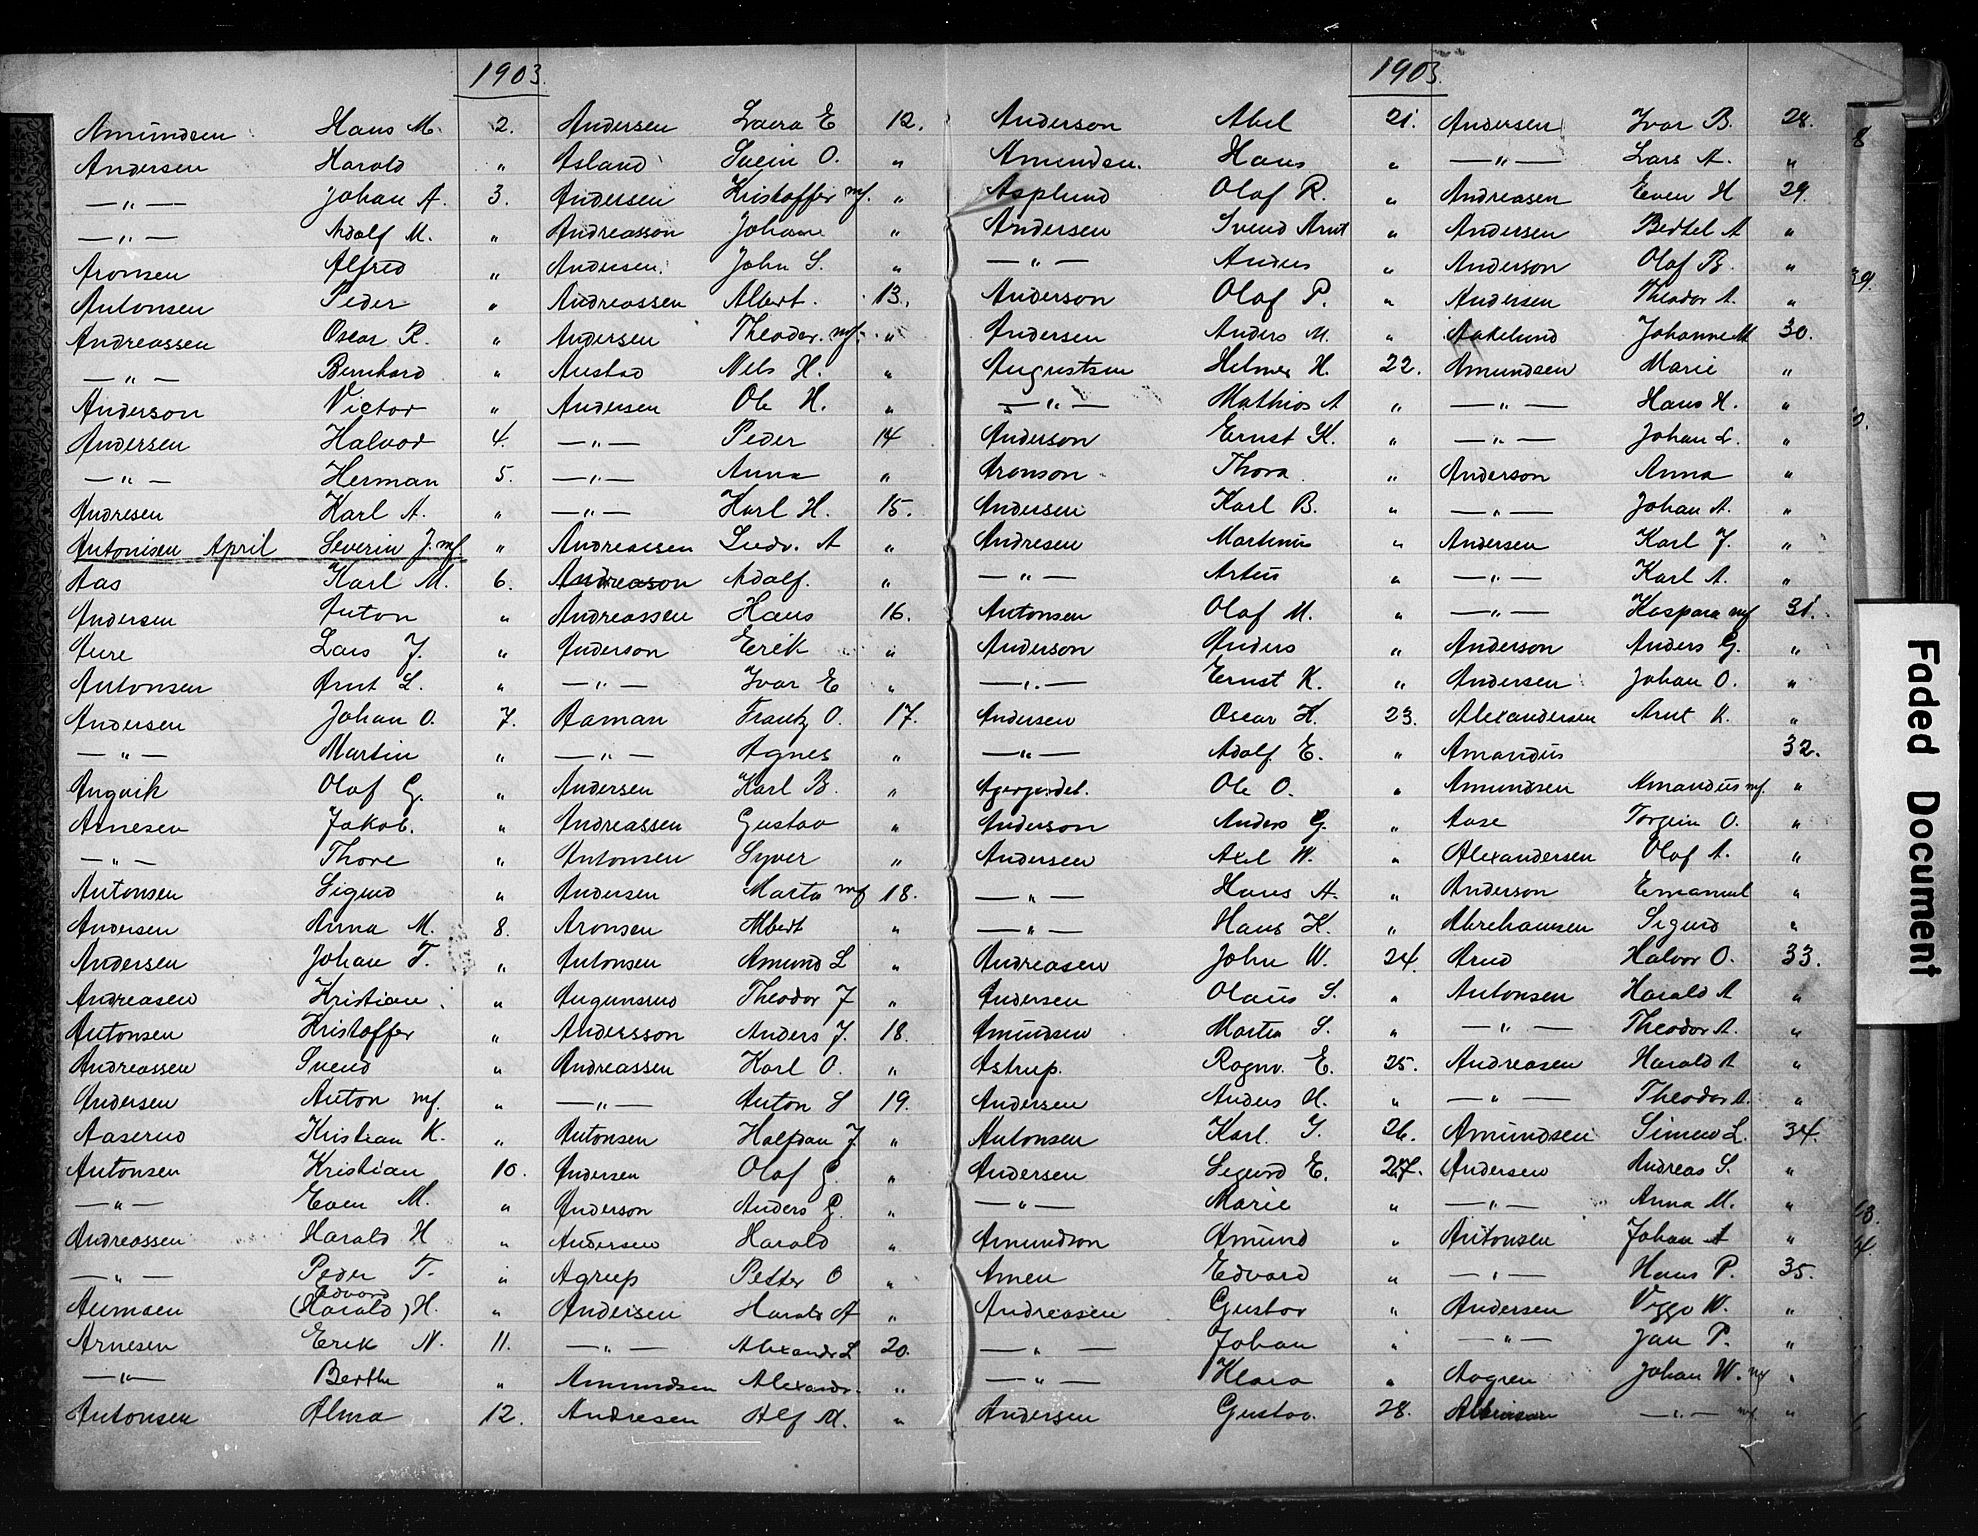 1903.
Amundsen Hans M. 2.
Andersen Harald "
—"— Johan A. 3.
—"— Adolf M. "
Aronsen Alfred "
Antonsen Peder "
Andreassen Oscar R. "
—"— Bernhard "
Anderson Victor "
Andersen Halvor 4.
—"— Herman 5.
Andresen Karl A. "
Antonisen April Severin J. mf "
Aas Karl M. 6.
Andersen Anton "
Aure Lars J. "
Antonsen Arnt L. "
Andersen Johan O. 7.
—"— Martin "
Angvik Olaf G. "
Arnesen Jakob. "
—"— Thore "
Antonsen Sigurd "
Andersen Anna M. 8.
Andersen Johan T. "
Andreasen Kristian "
Antonsen Kristoffer "
Andreassen Svend "
Andersen Anton mf. "
Aaserud Kristian K. "
Antonsen Kristian 10.
—"— Even M. "
Andreassen Harald H "
—"— Peder T. "
Edvard
(Harald) H. "
Arnesen Erik N. 11.
—"— Berthe "
Antonsen Alma 12.
Andersen Laura E 12.
Asland Svein O. "
Andersen Kristoffer mf. "
Andreasson Johan "
Andersen John S. "
Andreassen Albert. 13.
Andersen Theodor. mf. "
Austad Nils H. "
Andersen Ole H. "
—"— Peder 14
—"— Anna "
—"— Karl H. 15.
Andreassen Ludv. A "
Andreason Adolf. "
Andreassen Hans 16.
Anderson Erik "
—"— Ivar E "
Aaman Frantz O. 17.
—"— Agnes "
Andersen Karl B. "
Andreassen Gustav "
Antonsen Syver "
Andersen Marta mf 18.
Aronsen Albert "
Antonsen Amund L "
Augunsrud Theodor J "
Andersson Anders J. 18.
Andreassen Karl O. "
—"— Anton S 19.
Antonsen Halfdan J. "
Andersen Olaf G. "
Anderson Anders G. "
Andersen Harald "
Agrup Petter O "
Andersen Harald A "
—"— Alexandr L 20.
Amundsen Alexandr. "
Andresen Alf M. "
1903.
Anderson Abel 21.
Amundsen. Hans "
Asplund Olaf R. "
Andersen Svend Arnt "
—"— Anders "
Anderson Olaf P. "
Andersen Anders M. "
Augustsen Helmer H. 22.
—"— Mathias A "
Anderson Ernst K. "
Aronson Thora "
Andersen Karl B. "
Andresen Martinus "
—"— "
Antonsen Olaf M. "
Anderson Anders "
—"— Ernst K. "
Andersen Oscar H. 23.
—"— Adolf E. "
Ole O. "
Anderson Anders G. "
Andersen Axel W. "
—"— Hans A. "
—"— Hans K. "
Andreasen John W. 24.
Andersen Olaus S. "
Amundsen Martin S. "
Astrup. Ragnv. E. 25.
Andersen Anders H. "
Antonsen Karl. G. 26.
Andersen Sigurd E. 27.
—"— Marie "
Amundson Amund "
Amen Edvard "
Andreasen Gustav "
—"— Johan "
—"— Klara "
Andersen Gustav. 28.
Andersen Ivar B. 28.
—"— Lars A. "
Andreasen Even H 29.
Andersen Bertel A "
Anderson Olaf B. "
Andersen Theodor A. "
Aakelund Johanne M 30.
Amundsen Marie "
—"— Hans H. "
—"— Johan L. "
Anderson Anna "
—"— Johan A. "
Andersen Karl J. "
—"— Karl A. "
—"— Kaspara mf 31.
Anderson Anders G. "
Andersen Johan O. "
Alexandersen Arnt K. "
Amandus 32.
Amundsen Amandus mf. "
Aase Torgein O. "
Alexandersen Olaf A. "
Anderson Emanuel "
Abrahamsen Sigurd "
Arud Halvor O. 33.
Antonsen Harald A "
—"— Theodor A. "
Andreasen Harald A "
—"— Theodor A. "
Amundsen Simen L. 34.
Andersen Andreas S. "
—"— Anna M. "
Antonsen Johan A "
—"— Hans P. 35.
Andersen Viggo W. "
—"— Jan P. "
Aagren Johan W. mf "
—"— mf "
Faded Document